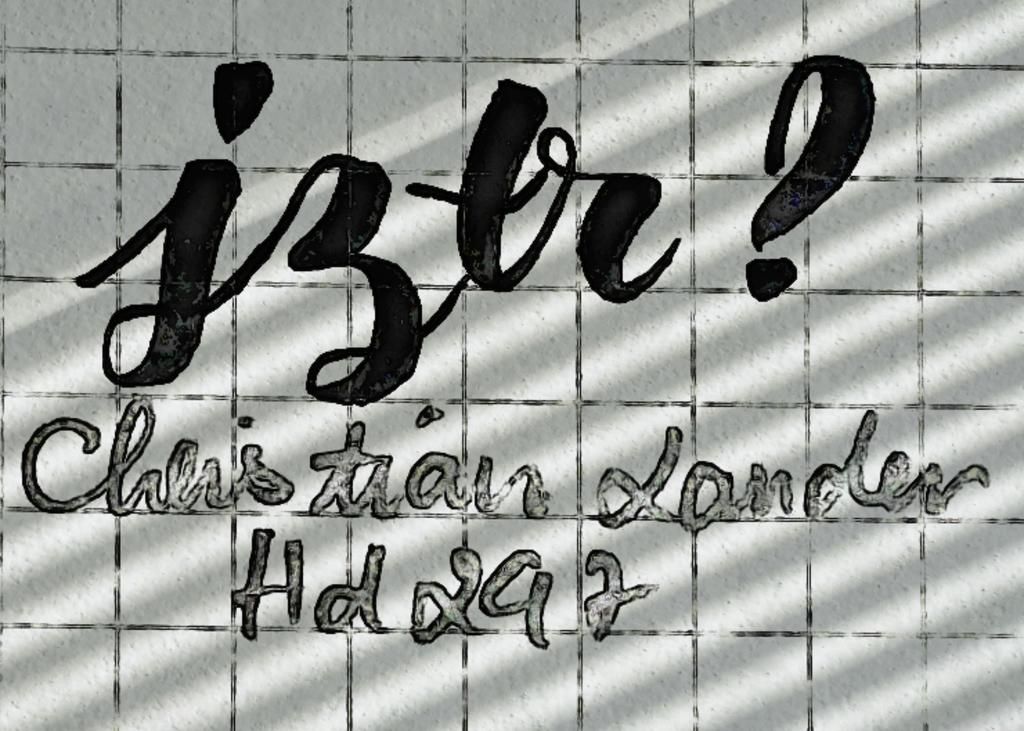 jzbr?
Christian Lander
Hd 29 2